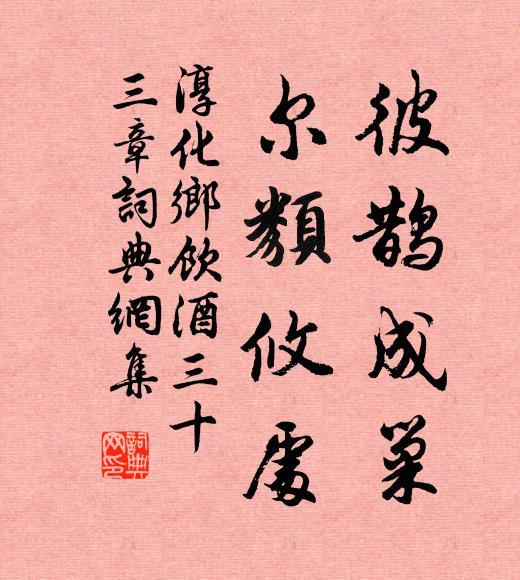 彼鹊成巢
尔類攸處
淳化鄉飲酒三十
三章詞典網集
詞典
网印